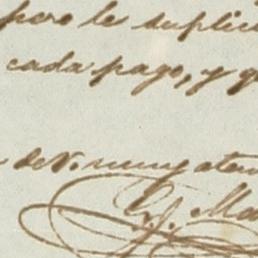 pero le suplic
cada pago, y q
de V. muy aten